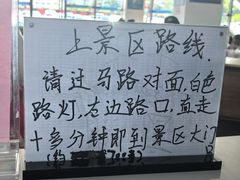 上景区路线.
请过马路对面,白色
路灯,左边路口,直走
十多分钟即到景区大门